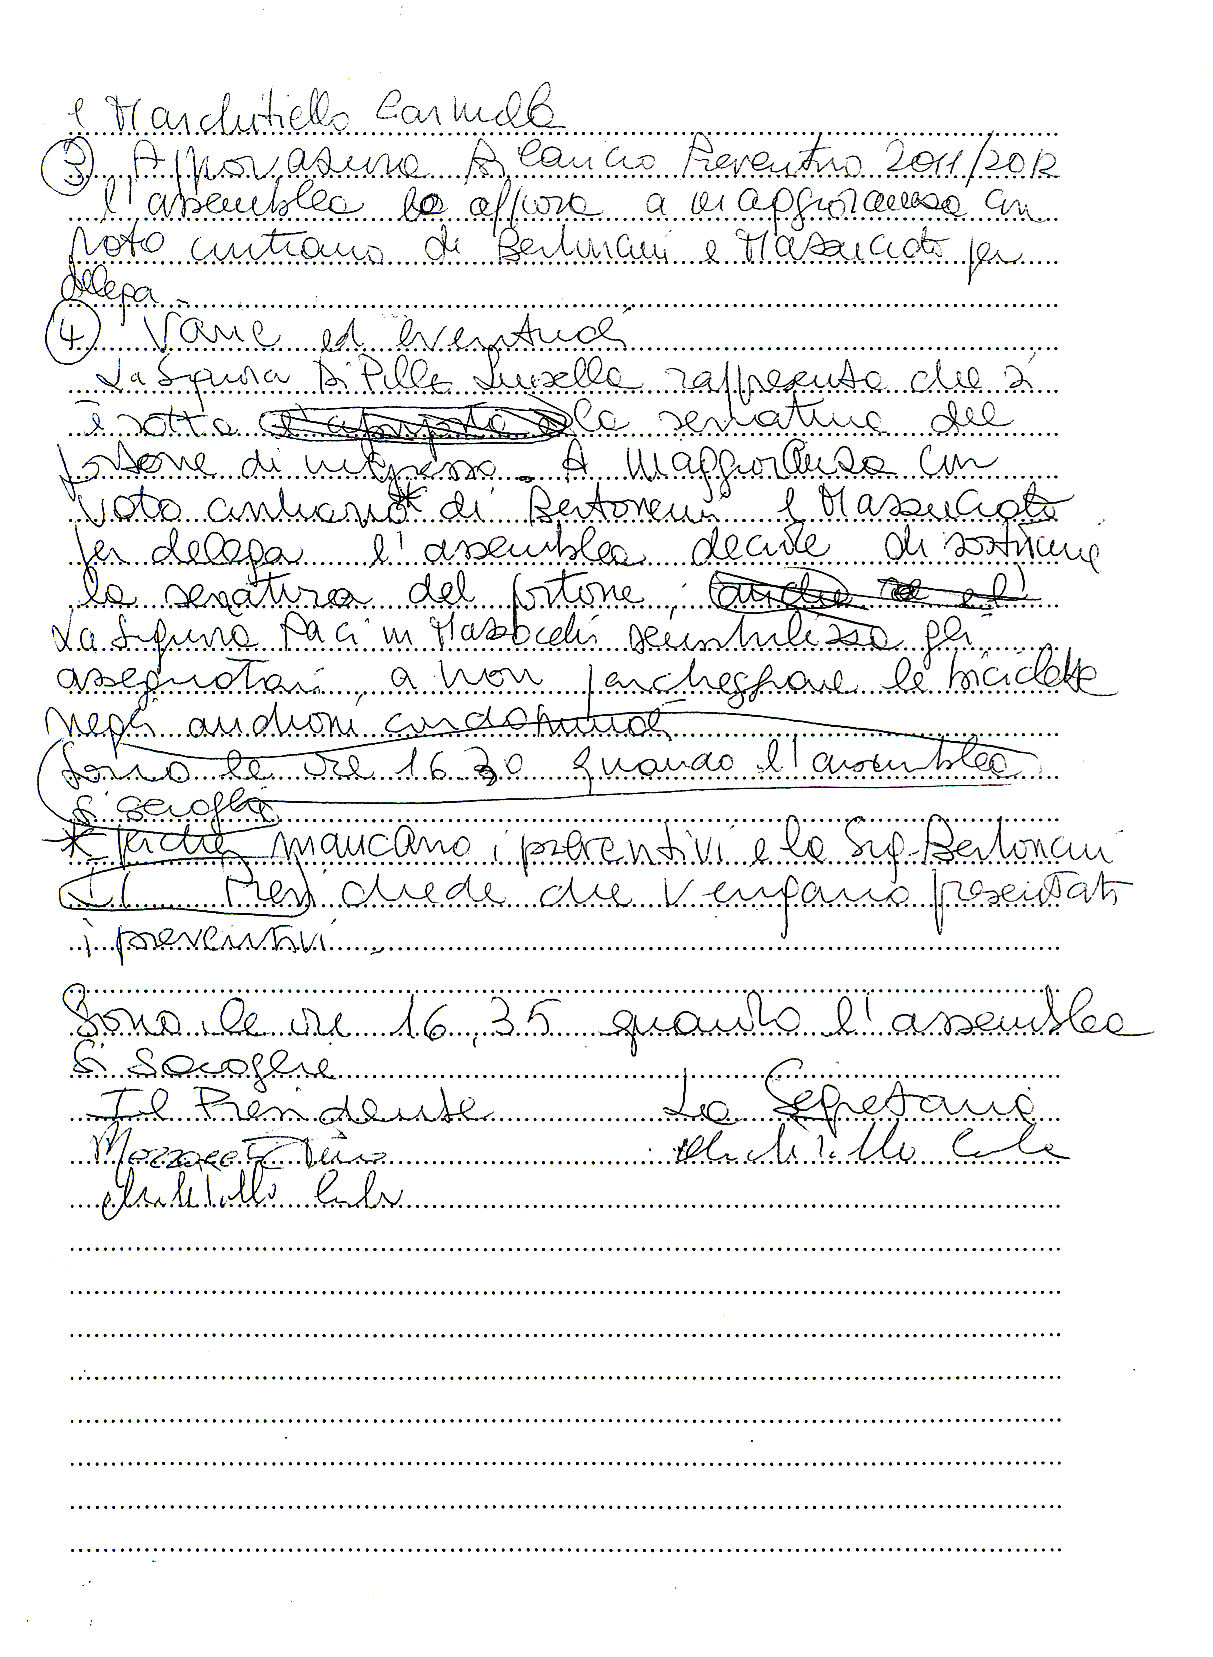 e Marchitiello Carmela
3 Approvazione Bilancio Preventivo 2011/2012
l'assemblea lo approva a maggioranza con
voto contrario di Bertoncini e Massucato per
delega
4 Varie ed eventuali
La Signora Di Pillo Luisella rappresenta che si
è rotta la serratura del
portone di ingresso. A maggioranza con
voto contrario* di Bertoncini e Massucato
per delega l'assemblea decide di sostituire
la serratura del portone,
La Signora Paci in Mazzocchi sensibilizza gli
assegnatari, a non parcheggiare le biciclette
negli androni condominiali
Sono le ore 16.30 quando l'assemblea
si scioglie
* perché mancano i preventivi e la Sig. Bertoncini
Il Presi chiede che vengano presentati
i preventivi.
Sono le ore 16,35 quando l'assemblea
si scioglie
Il Presidente La Segretaria